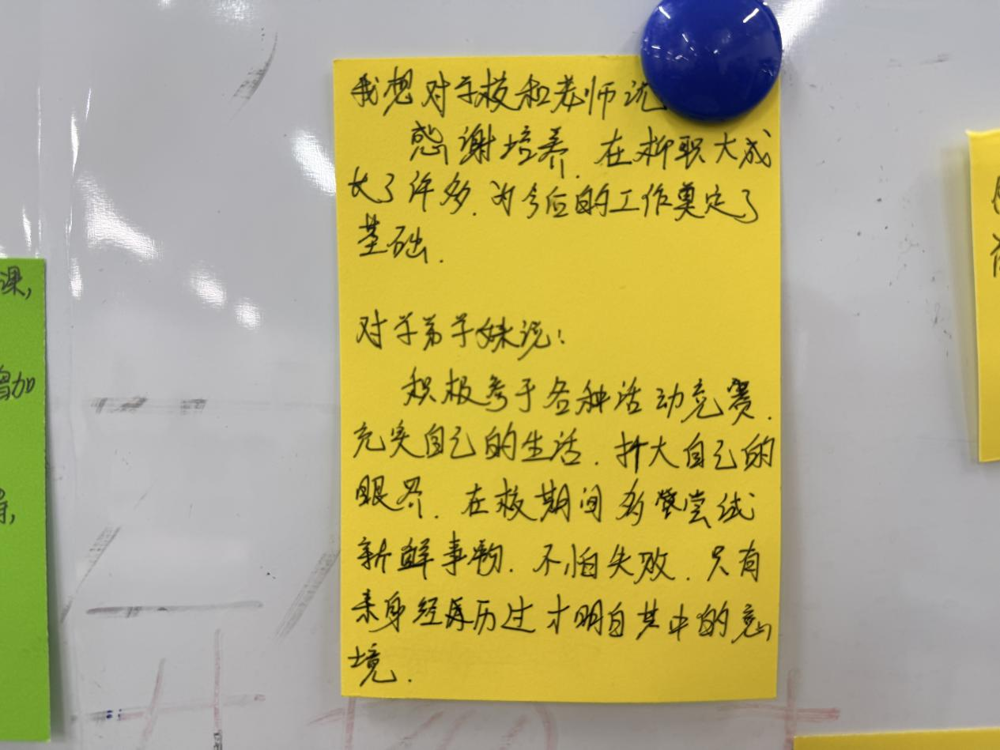 我想对学校和老师说
感谢培养.在柳职大成
长了许多.为今后的工作奠定了
基础.
对学弟学妹说:
积极参于各种活动竞赛.
充实自己的生活.扩大自己的
眼界.在校期间多尝尝试
新鲜事物.不怕失败.只有
亲身经历过才明白其中的意
境.
课,
增加